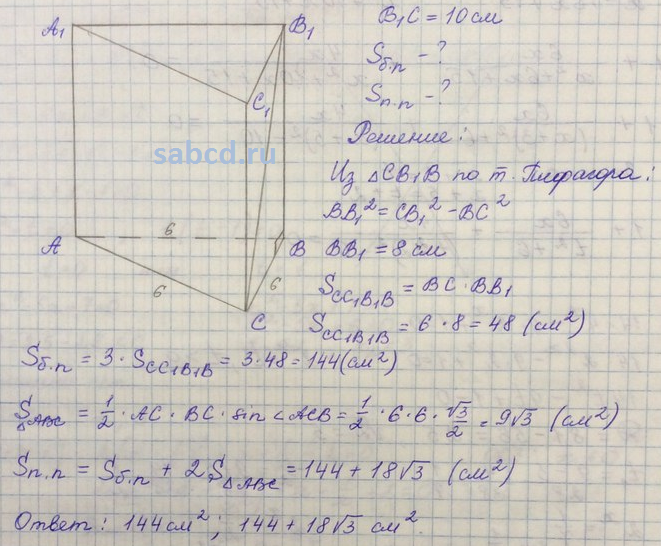 A₁
B₁
C₁
A
B
C
6
6
6
sabcd.ru
B₁C = 10 см
Sб.п - ?
Sп.п - ?
Решение:
Из △CB₁B по т. Пифагора:
BB₁² = CB₁² - BC²
BB₁ = 8 см
SCC₁B₁B = BC · BB₁
SCC₁B₁B = 6 · 8 = 48 (см²)
Sб.п = 3 · SCC₁B₁B = 3 · 48 = 144 (см²)
S△ABC = 1/2 · AC · BC · sin ∠ACB = 1/2 · 6 · 6 · √3/2 = 9√3 (см²)
Sп.п = Sб.п + 2S△ABC = 144 + 18√3 (см²)
Ответ: 144 см²; 144 + 18√3 см².